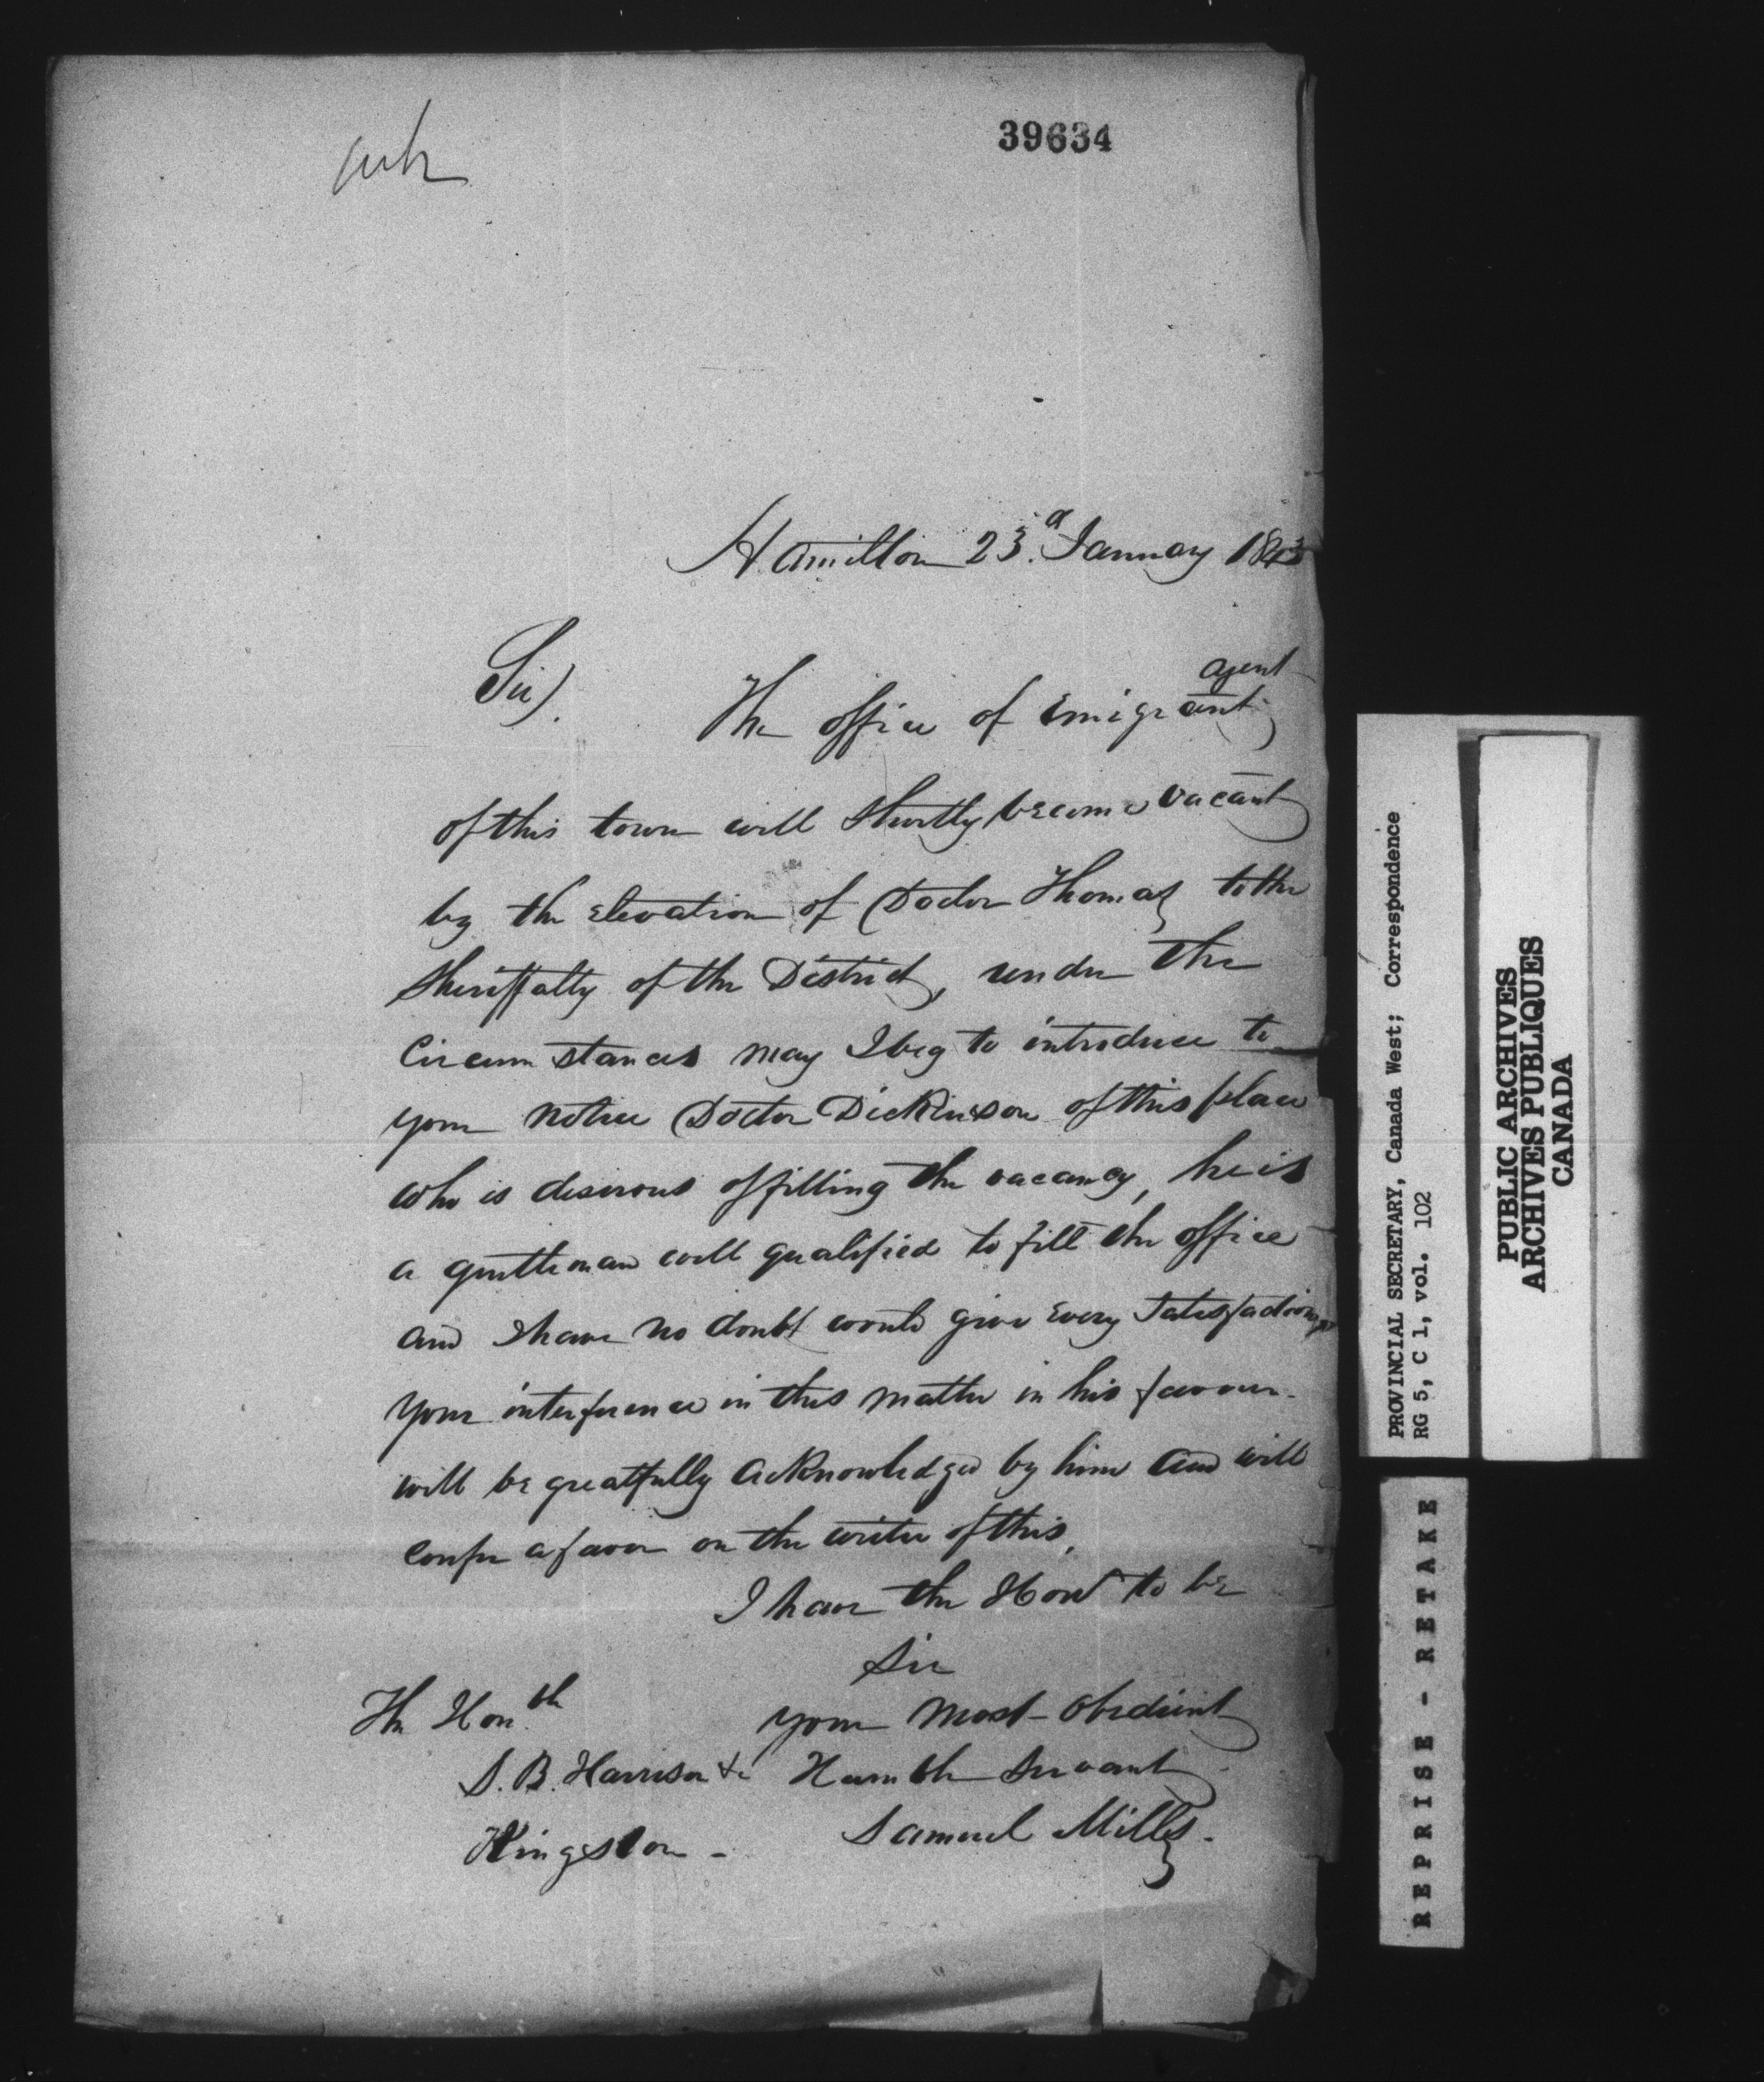 39634
Hamilton 23.d January 1843
Sir).
agent
The office of Emigrant
of this town will Shortly become vacant
by the elevation of Doctor Thomas to the
Sheriffalty of the District, under the
Circumstances may I beg to introduce to
your notice Doctor Dickinson of this place
who is desirous of filling the vacancy, he is
a gentleman well qualified to fill the office
and I have no doubt would give every Satisfaction,
Your interference in this matter in his favour
will be greatfully acknowledged by him and will
confer a favor on the writer of this,
I have the Honr to be
Sir
Your Most Obedient
Humble Servant
Samuel Mills.
The Honble
S. B. Harrison &c
Kingston -
PROVINCIAL SECRETARY, Canada West; Correspondence
RG 5, C 1, vol. 102
PUBLIC ARCHIVES
ARCHIVES PUBLIQUES
CANADA
REPRISE - RETAKE